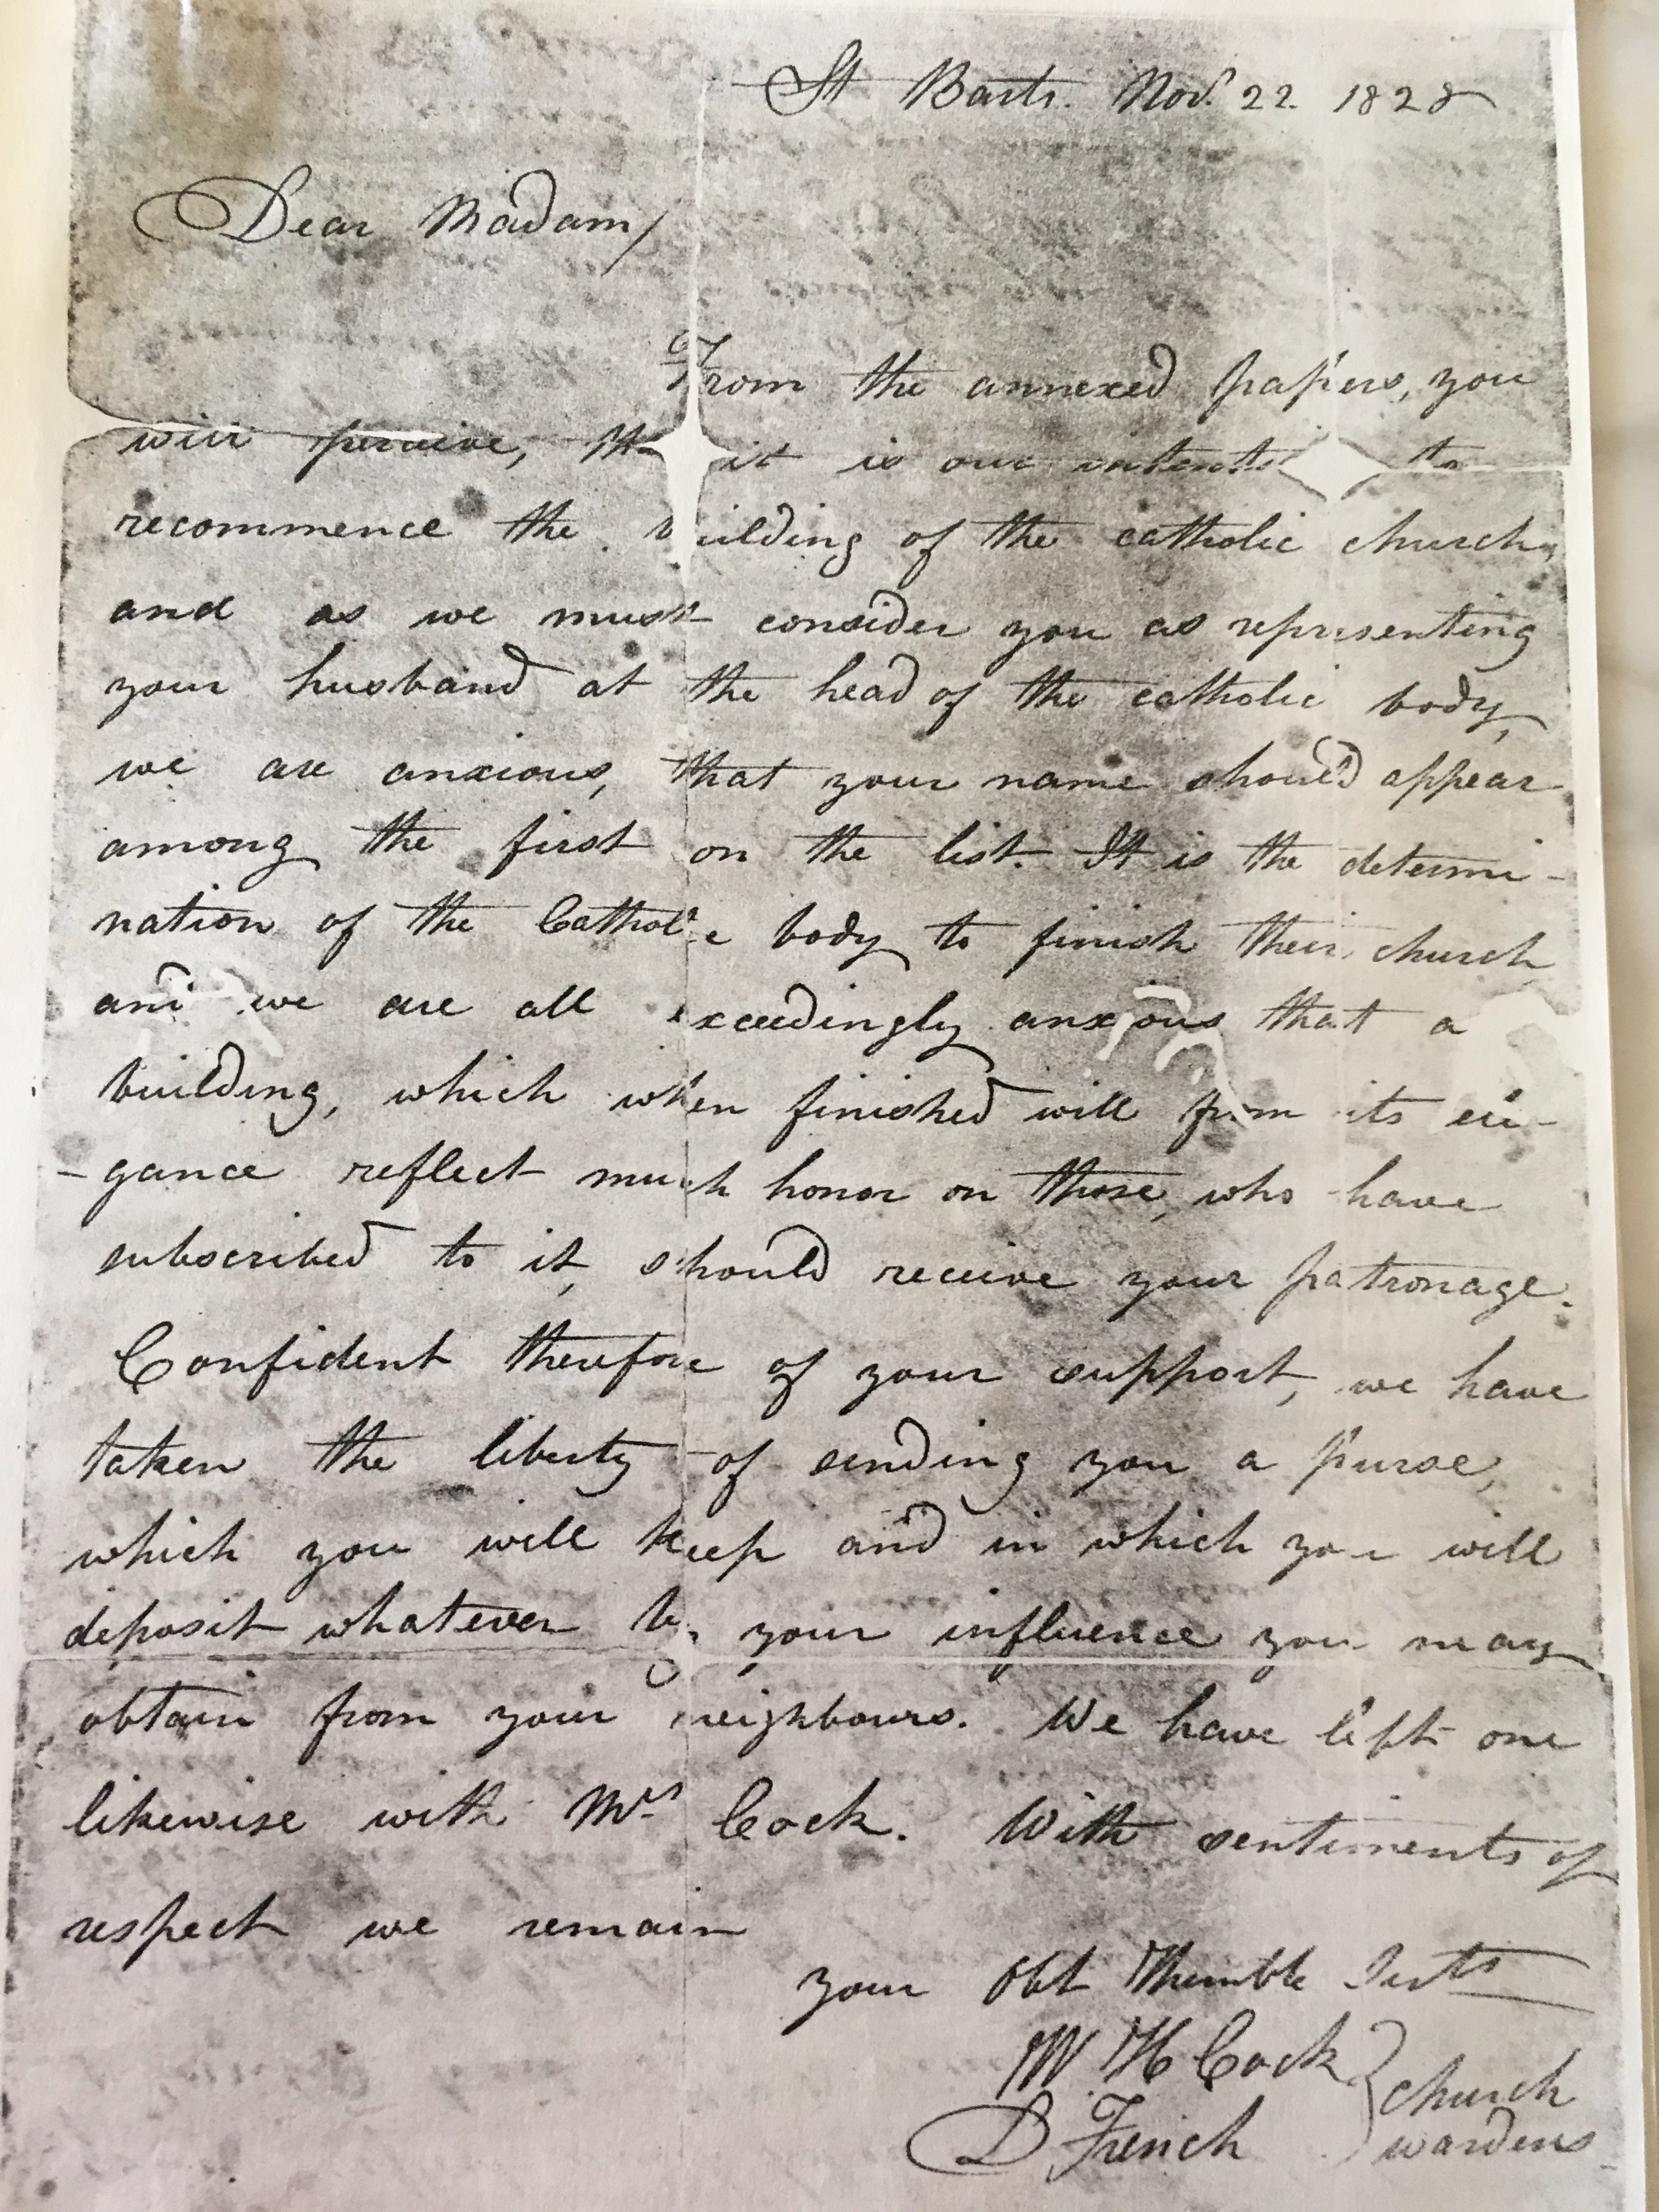 St Barts. Novr. 22. 1828
Dear Madam/
From the annexed papers, you
will perceive, it is our to
recommence the building of the catholic church,
and as we must consider you as representing
your husband at the head of the catholic body,
we are anxious, that your name should appear
among the first on the list. It is the determi-
nation of the Catholic body to finish their church
and we are all exceedingly anxious that a
building, which when finished will from its ele-
-gance reflect much honor on those, who have
subscribed to it, should receive your patronage.
Confident therefore of your support, we have
taken the liberty of sending you a purse,
which you will keep and in which you will
deposit whatever by your influence you may
obtain from your neighbours. We have left one
likewise with Mrs Cock. With sentiments of
respect we remain
your Obt Humble Servts
W. H Cock } church
D French } wardens